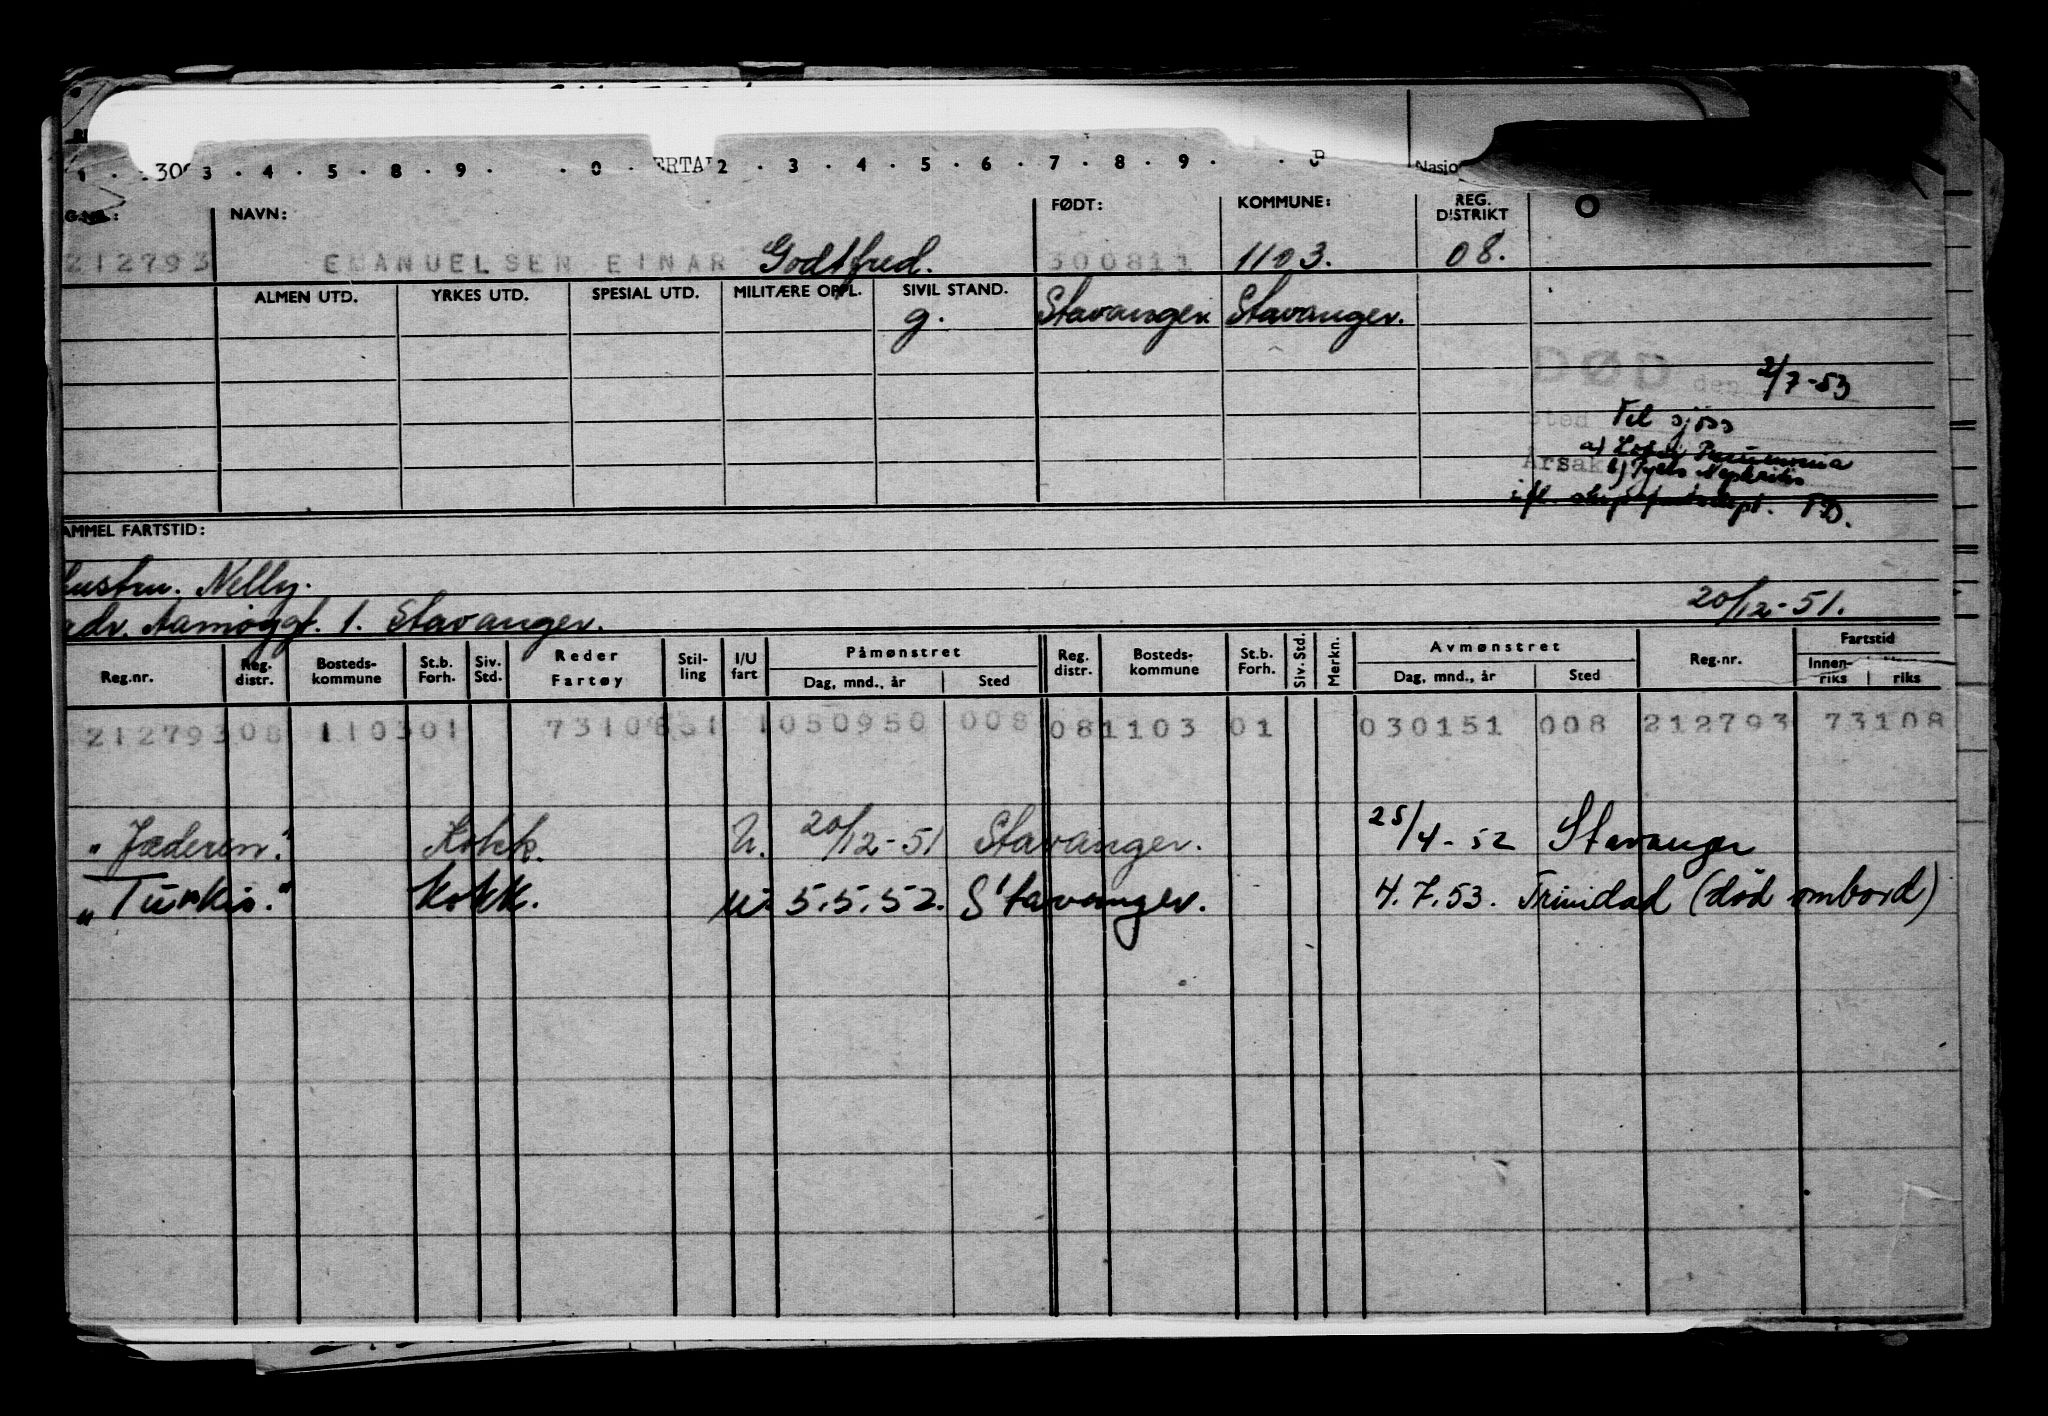 1 . 300 3 . 4 . 5 . 8 . 9 . . 0 . ERTA 2 . 3 . 4 . 5 . 6 . 7 . 8 . 9 . Nasjo
NAVN: FØDT: KOMMUNE: REG. DISTRIKT O
212793 EMANUELSEN EINAR Godtfred. 300811 1103. 08.
ALMEN UTD. YRKES UTD. SPESIAL UTD. MILITÆRE OPPL. SIVIL STAND. Stavanger Stavanger.
g.
DØD den 2/7-53
Sted Til sjøss
a) Pneumonia
Årsak b) Nephritis
ifl. T.D.
AMMEL FARTSTID:
ustru. Nelly.
adr. Aamøygt. 1. Stavanger. 20/12-51.
Reg.nr. Reg. distr. Bosteds- kommune St.b. Forh. Siv. Std. Reder Fartøy Stil- ling I/U fart Påmønstret Dag, mnd., år Sted Reg. distr. Bosteds- kommune St.b. Forh. Siv. Std. Merkn. Avmønstret Dag, mnd., år Sted Reg.nr. Fartstid Innen- riks riks
212793 08 1103 01 73108 51 1 050950 008 08 1103 01 030151 008 212793 73108
"Jæderen." Kokk. U. 20/12-51 Stavanger. 25/4-52 Stavanger
"Turkis." Kokk. u. 5.5.52. Stavanger. 4.7.53. Trinidad (død ombord)